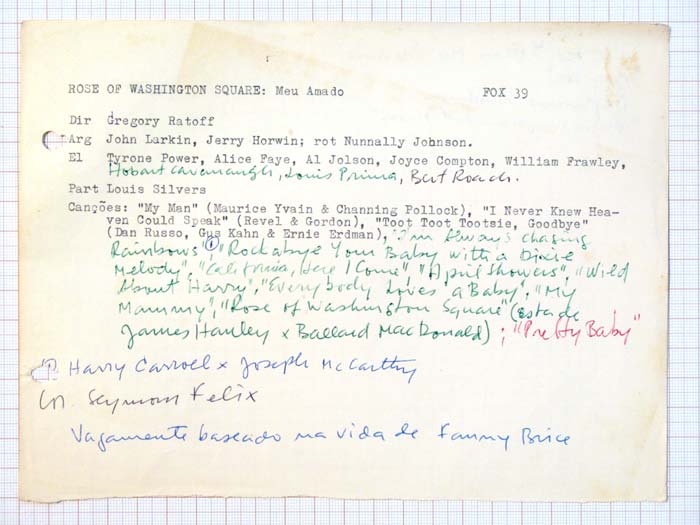 ROSE OF WASHINGTON SQUARE: Meu Amado FOX 39
Dir Gregory Ratoff
Arg John Larkin, Jerry Horwin; rot Nunnally Johnson.
El Tyrone Power, Alice Faye, Al Jolson, Joyce Compton, William Frawley,
Hobart Cavanaugh, Louis Prima, Bert Roach.
Part Louis Silvers
Canções: "My Man" (Maurice Yvain & Channing Pollock), "I Never Knew Hea-
ven Could Speak" (Revel & Gordon), "Toot Toot Tootsie, Goodbye"
(Dan Russo, Gus Kahn & Ernie Erdman), "I'm Always chasing
Rainbows" ①, "Rockabye Your Baby with a Dixie
Melody", "California, Here I Come", "April Showers", "Wild
About Harry", "Everybody Loves a Baby", "My
Mammy", "Rose of Washington Square" (esta de
James Hanley x Ballard MacDonald); "Pretty Baby"
① Harry Carroel x Joseph McCarthy
Cn. Seymour Felix
Vagamente baseado na vida de Fanny Brice